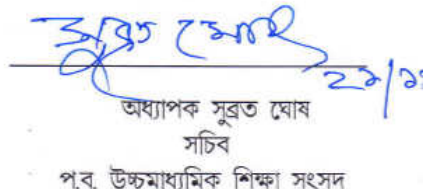 সুব্রত ঘোষ
অধ্যাপক সুব্রত ঘোষ
সচিব
প.ব. উচ্চমাধ্যমিক শিক্ষা সংসদ